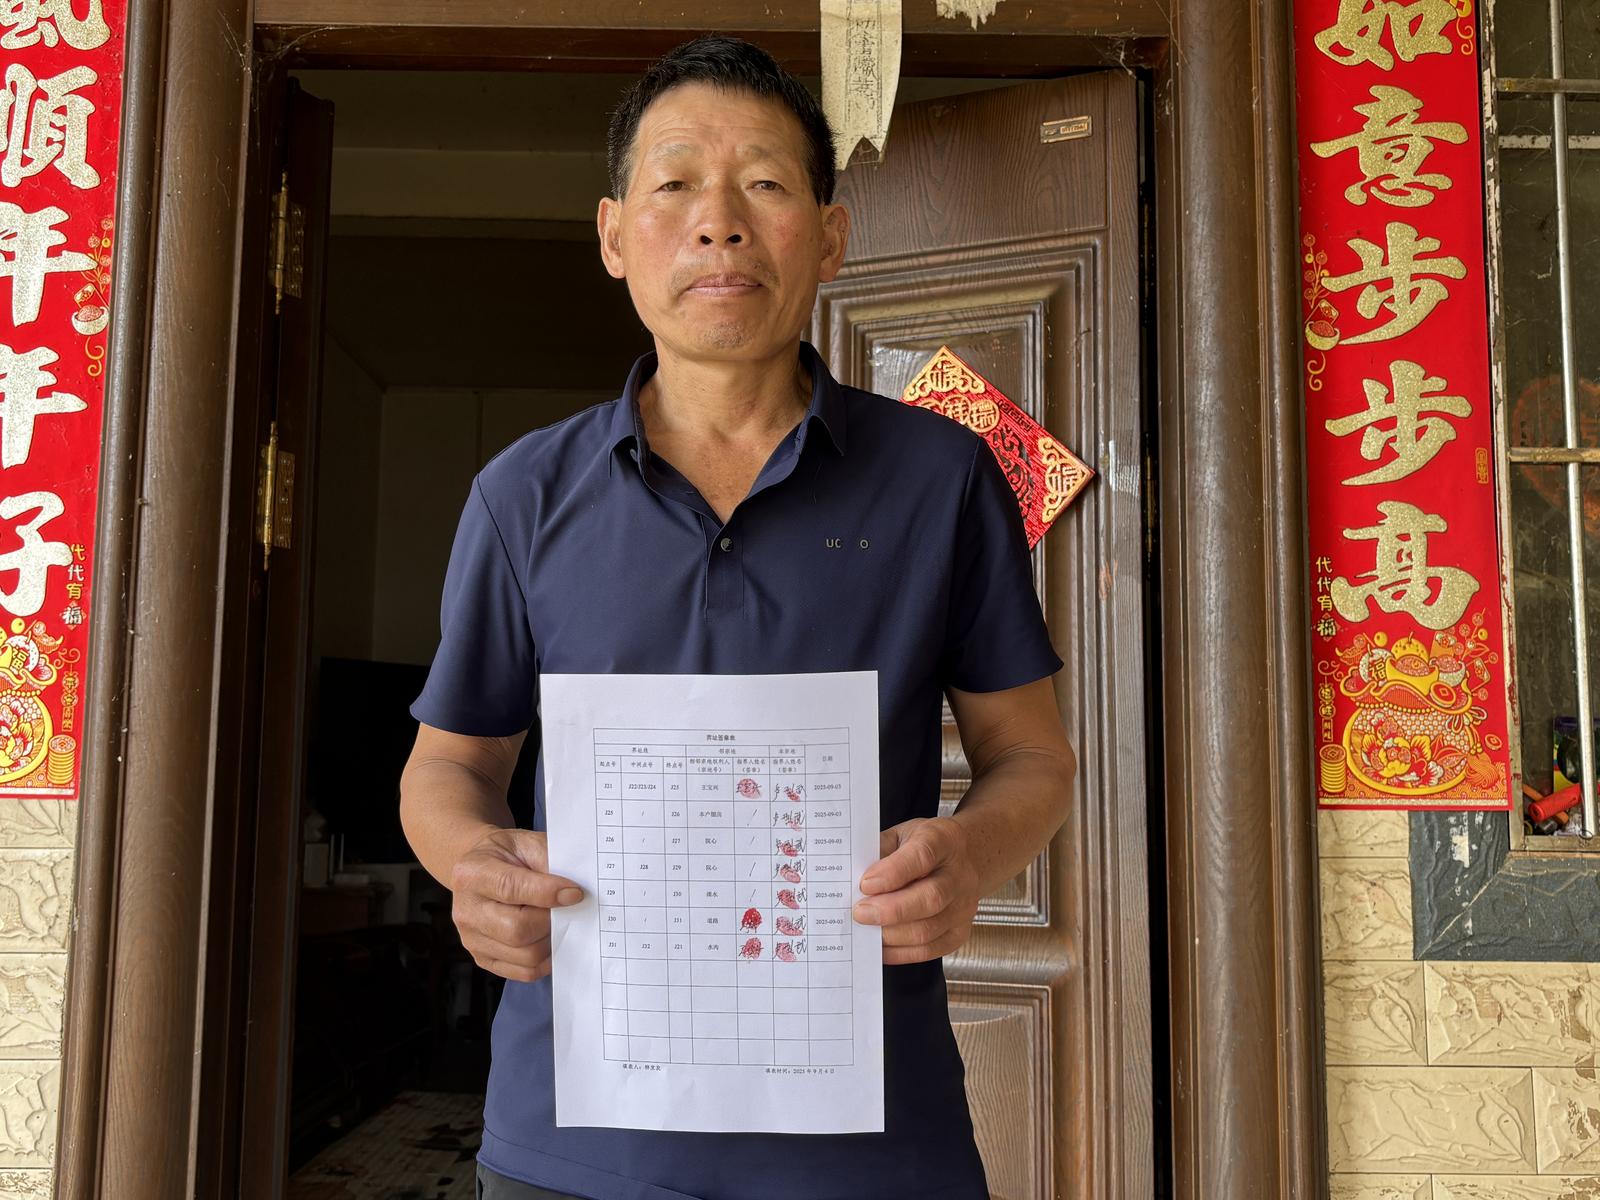 風
順
年
年
好
代代有福
如
意
步
步
高
代代有福
福
祥瑞
福
UC O
界址签章表
界址线 邻宗地 本宗地 日期
起点号 中间点号 终点号 相邻宗地权利人(宗地号) 指界人姓名(签章) 指界人姓名(签章)
J21 J22/J23/J24 J25 王宝兴 王宝兴 2025-09-03
J25 / J26 本户烟房 / 2025-09-03
J26 / J27 院心 / 2025-09-03
J27 J28 J29 院心 / 2025-09-03
J29 / J30 滴水 / 2025-09-03
J30 / J31 道路 2025-09-03
J31 J32 J21 水沟 2025-09-03
填表人：
填表时间：2025年9月6日